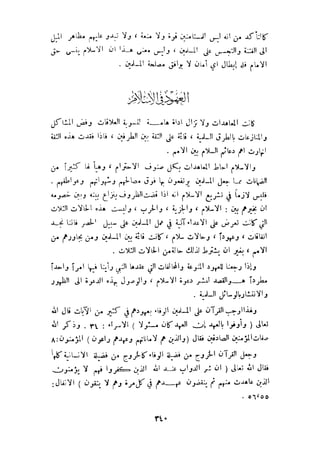 كالتأكد من أنه ليس القستأمنين قوة ولا منعة ، ولا تبدو عليهم مظاهر الميل
إلى الفتنة والتجسس على المسلمين ، وليس معنى هذا أن الإسلام ينسى حق
الإمام فله إبطال أي أمان لا يوافق مصلحة المسلمين .
العهود في الإسلام
كانت المعاهدات ولا تزال أداة هـــامة لتسوية العلاقات وفض المشاكل
والمنازعات بالطرق السلمية ، قائمة على الثقة بين الطرفين ، فاذا فقدت هذه الثقة
انهارت أهم دعائم السلم بين الأمم .
والإسلام أحاط المعاهدات بكل صنوف الاحترام ، وهيأ لها كثيراً من
الضمانات مما جعل المسلمين يرتفعون بها فوق مصالحهم وشهواتهم وعواطفهم .
فليس لازماً في تشريع الإسلام أنه اذا اقتضت الظروف بنزاع بينه وبين خصومه
أن يخيرهم بين : الإسلام ، والجزية ، والحرب ، وليست هذه الحالات الثلاث
التي كانت تعرض على الأعداء لآية في عمل المسلمين على سبيل الحصر فاننا نجد
اتفاقات ، وعهوداً ، وحالات سلام ، كانت قائمة بين المسلمين ومن يجاورهم من
الأمم ، بغير أن يشترط لذلك حالة من الحالات الثلاث .
وإذا رجعنا للعهود المنوعة والمحالفات التي عقدها النبي رأينا فيها أمراً واحداً
مطرداً وهــو القصد لنشر دعوة الإسلام ، والوصول بهذه الدعوة الى الظهور
والانتشار بالوسائل السلمية .
وهذا أوجب القرآن على المسلمين الوفاء بعهودهم في كثير من الآيات قال الله
تعالى ( وأوفوا بالعهد إن العهد كان مسئولا ) الإسراء : ٣٤ . وذكر الله من
صفات المؤمنين الصادقين فقال ( والذين هم لأماناتهم وعهدهم راعون ) المؤمنون : ٨
وجعل القرآن الخروج من فضيلة الوفاء كالخروج من فضيلة الإنسانية كلها
فقال الله تعالى ( إن شر الدواب عنــد الله الذين كفروا فهم لا يؤمنون
الذين عاهدت منهم ثم ينقضون عهــدهم في كل مرة وهم لا يتقون ) الأنفال :
٥٥ ، ٥٦ .
٣٤٠